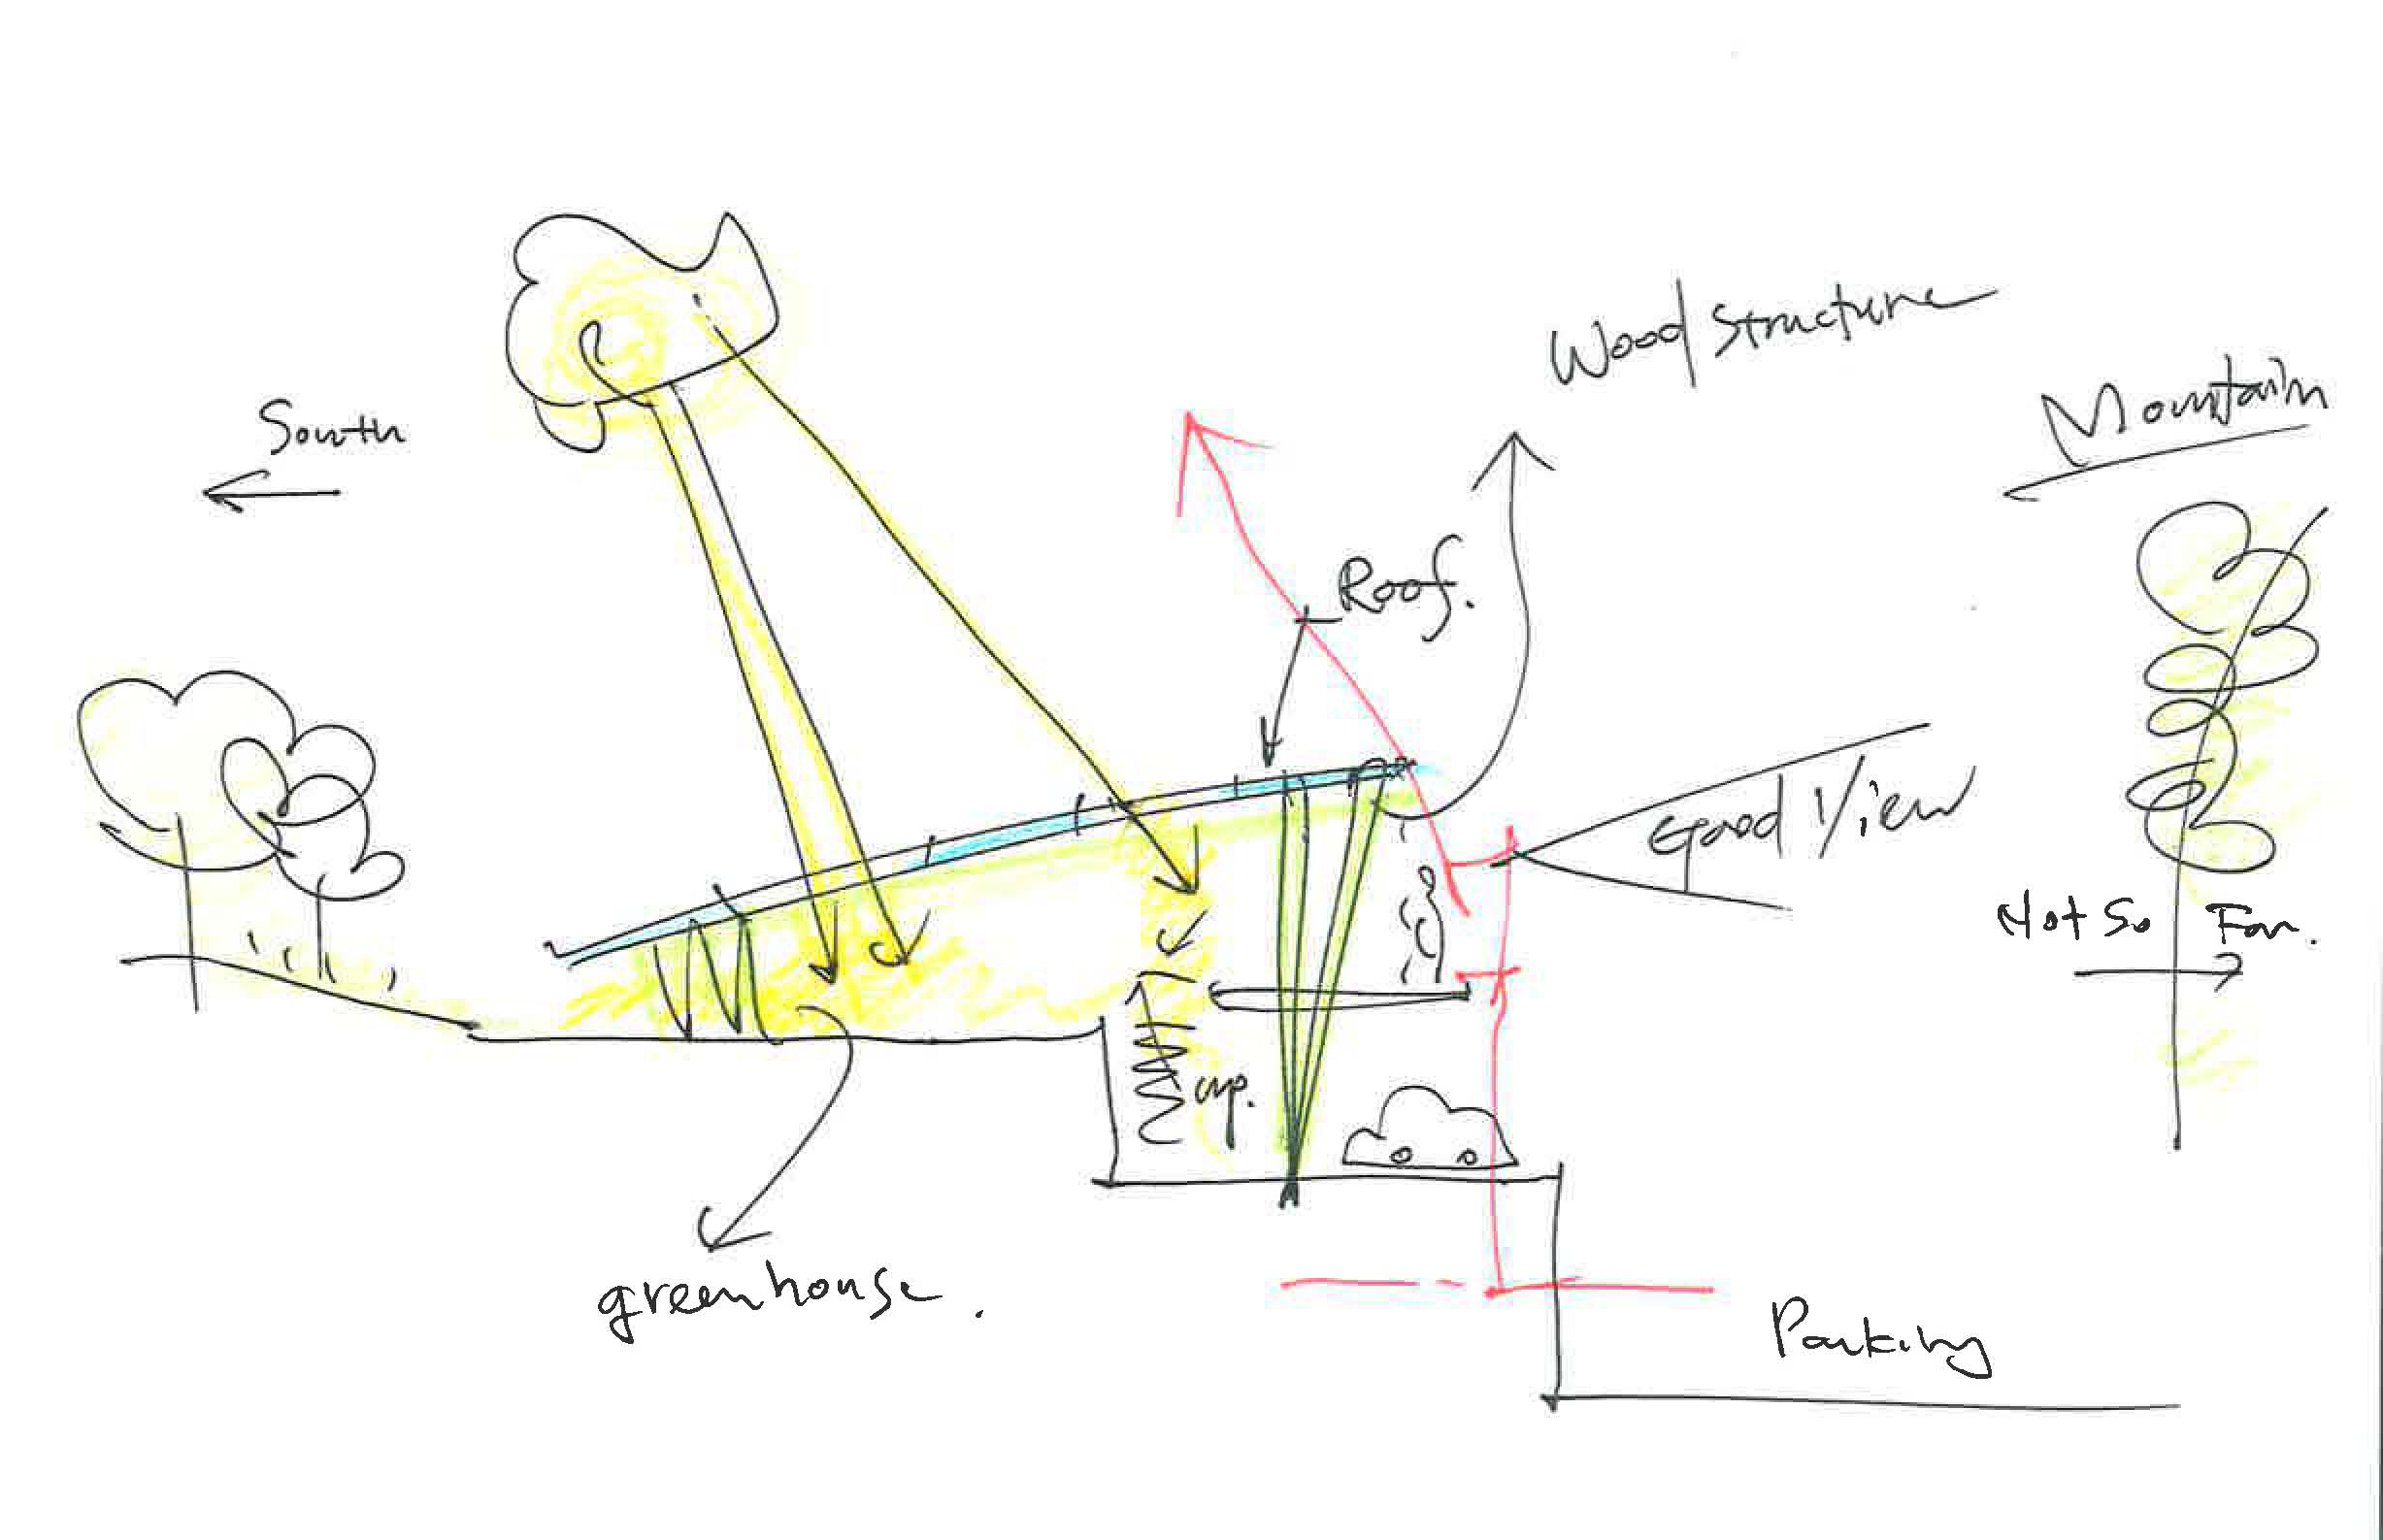 South
Wood Structure
Mountain
Roof.
Good View
Not So Far.
up.
greenhouse.
Parking